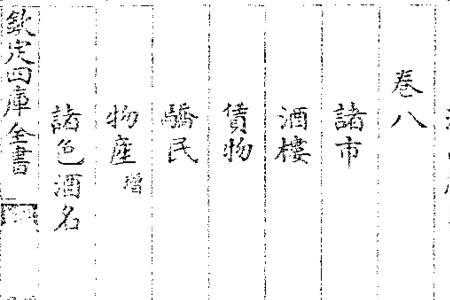 卷八
諸市
酒樓
賃物
驕民
物産增
諸色酒名
欽定四庫全書